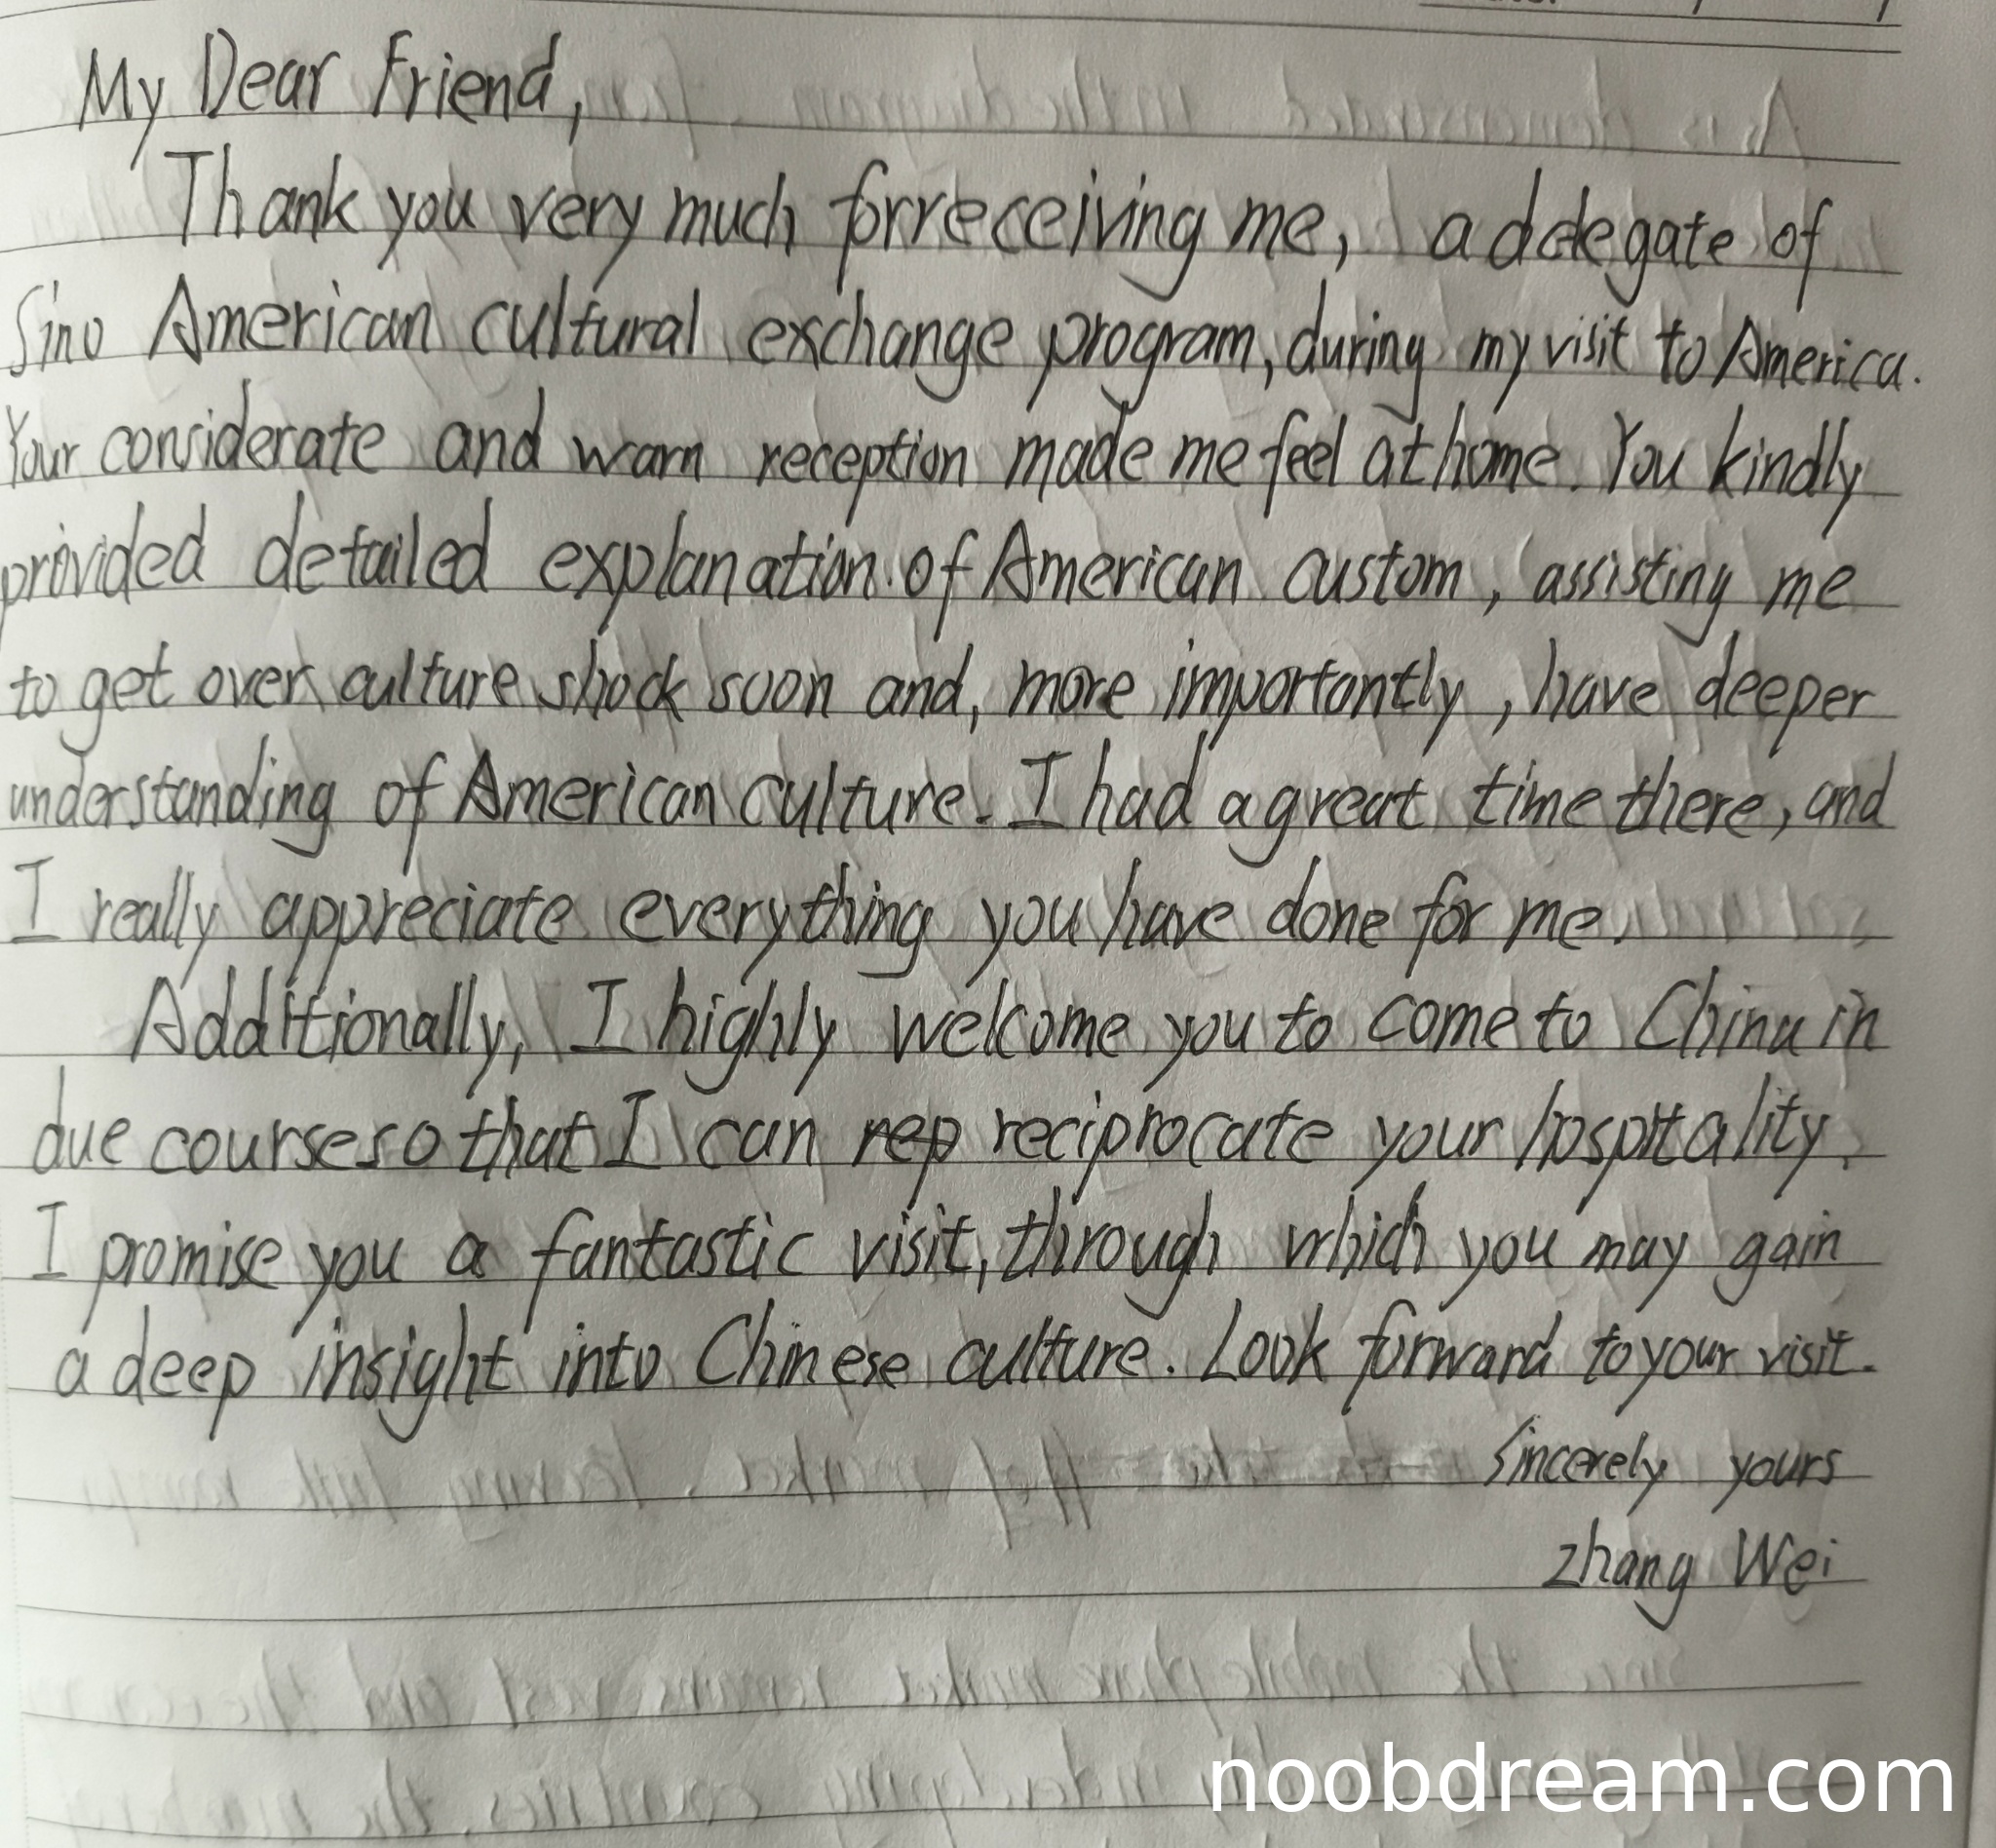 My Dear Friend,
Thank you very much for receiving me, a delegate of
Sino American cultural exchange program, during my visit to America.
Your considerate and warn reception made me feel at home. You kindly
provided detailed explanation of American custom, assisting me
to get over culture shock soon and, more importantly, have deeper
understanding of American culture. I had a great time there, and
I really appreciate everything you have done for me.
Additionally, I highly welcome you to come to China in
due course so that I can rep reciprocate your hospitality.
I promise you a fantastic visit, through which you may gain
a deep insight into Chinese culture. Look forward to your visit.
Sincerely yours
Zhang Wei
noobdream.com